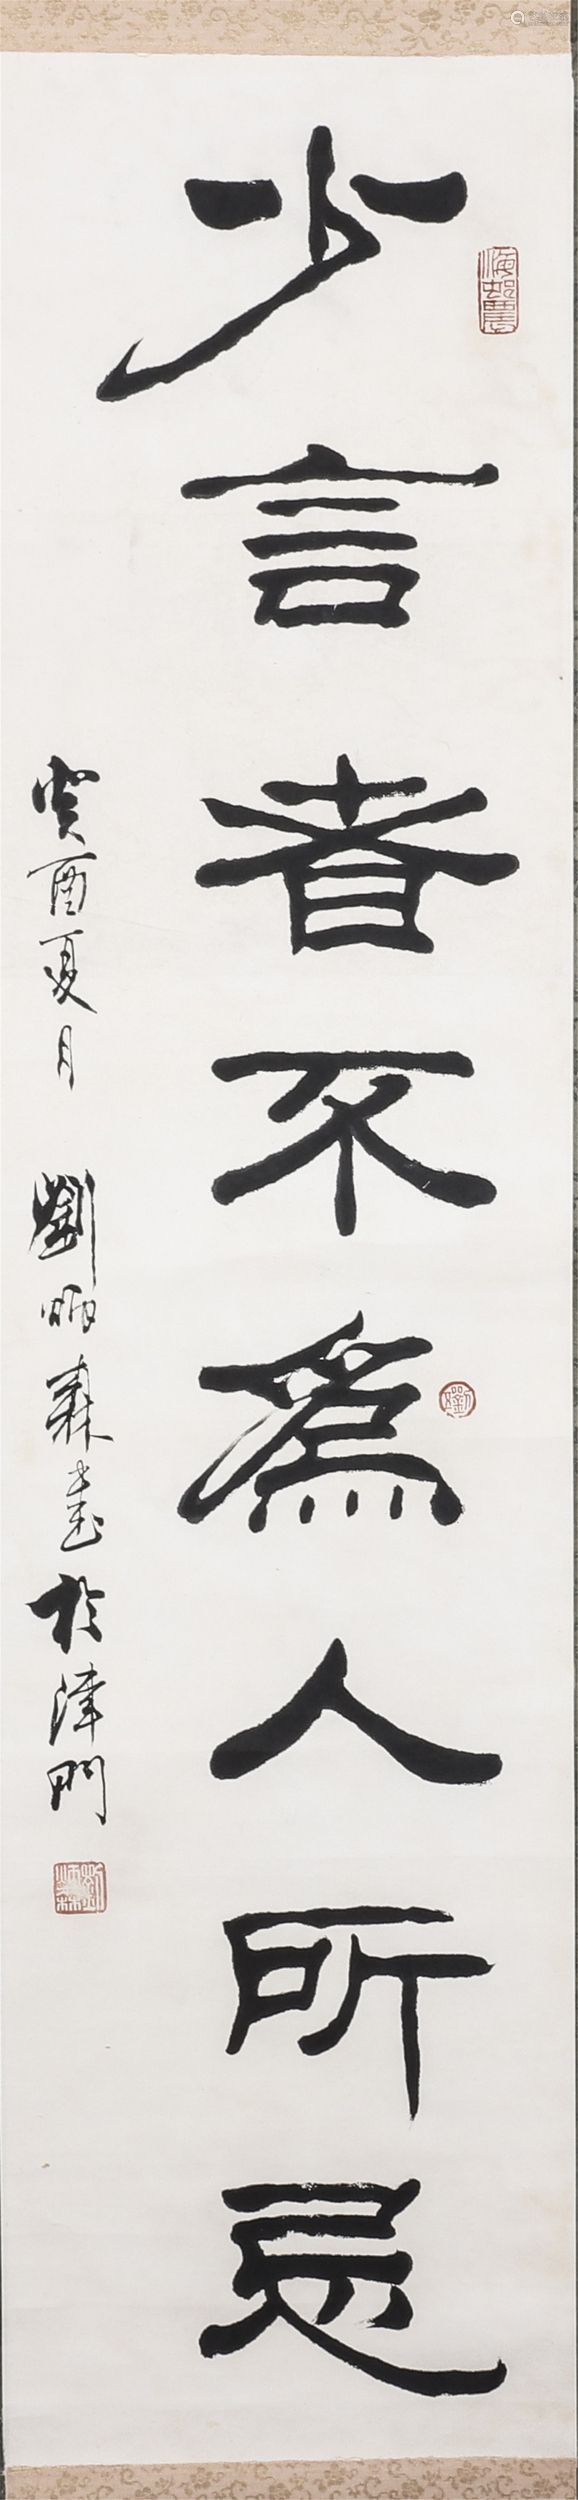 少言者不為人所忌
癸酉夏月 劉炳森書於津門
劉
劉炳森